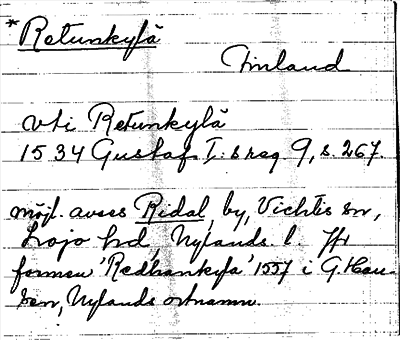 *Retunkylä
Finland
vti Retunkylä
1534 Gustaf I:s reg. 9, s. 267.
möjl. avses Ridal, by, Vichtis sn,
Lojo hd, Nylands l. Jfr
formen 'Redhankyla' 1557 i G. Hau-
sen, Nylands ortnamn.